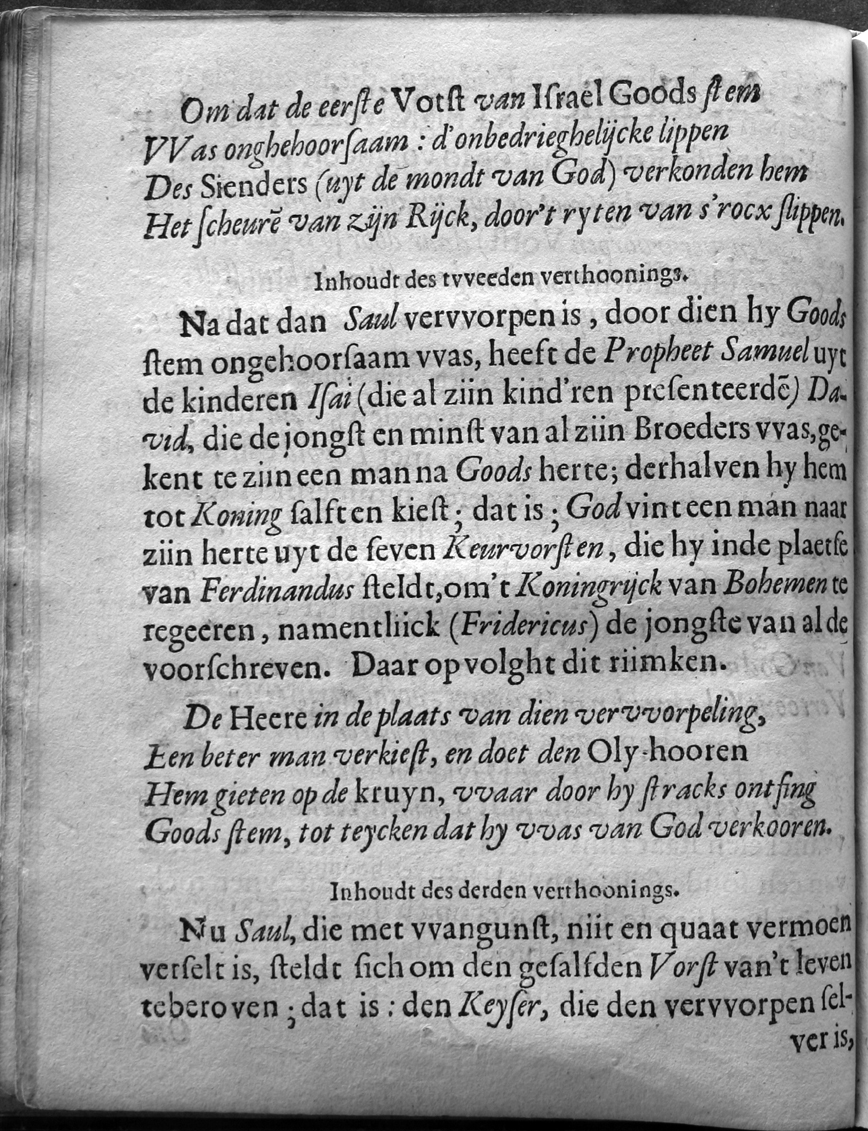 Om dat de eerſte Votſt van Iſrael Goods ſtem
VVas onghehoorſaam : d'onbedrieghelijcke lippen
Des Sienders (uyt dē mondt van God) verkonden hem
Het ſcheurē van zijn Rijck, door't ryten van s'rocx ſlippen.
Inhoudt des tvveeden verthoonings.
Na dat dan Saul vervvorpen is , door dien hy Goods
ſtem ongehoorſaam vvas, heeft de Propheet Samuel uyt
de kinderen Iſai (die al ziin kind'ren preſenteerdē) Da-
vid, die de jongſt en minſt van al ziin Broeders vvas,ge-
kent te ziin een man na Goods herte; derhalven hy hem
tot Koning ſalft en kieſt ; dat is ; God vint een man naar
ziin herte uyt de ſeven Keurvorſten , die hy inde plaetſe
van Ferdinandus ſteldt,om't Koningrijck van Bohemen te
regeeren , namentliick (Fridericus) de jongſte van al de
voorſchreven. Daar op volght dit riimken.
De Heere in de plaats van dien vervvorpeling,
Een beter man verkieſt, en doet den Oly-hooren
Hem gieten op de kruyn, vvaar door hy ſtracks ontfing
Goods ſtem, tot teycken dat hy vvas van God verkooren.
Inhoudt des derden verthoonings.
Nu Saul, die met vvangunſt, niit en quaat vermoen
verſelt is, ſteldt ſich om den geſalfden Vorſt van't leven
te beroven ; dat is : den Keyſer, die den vervvorpen ſel-
ver is,